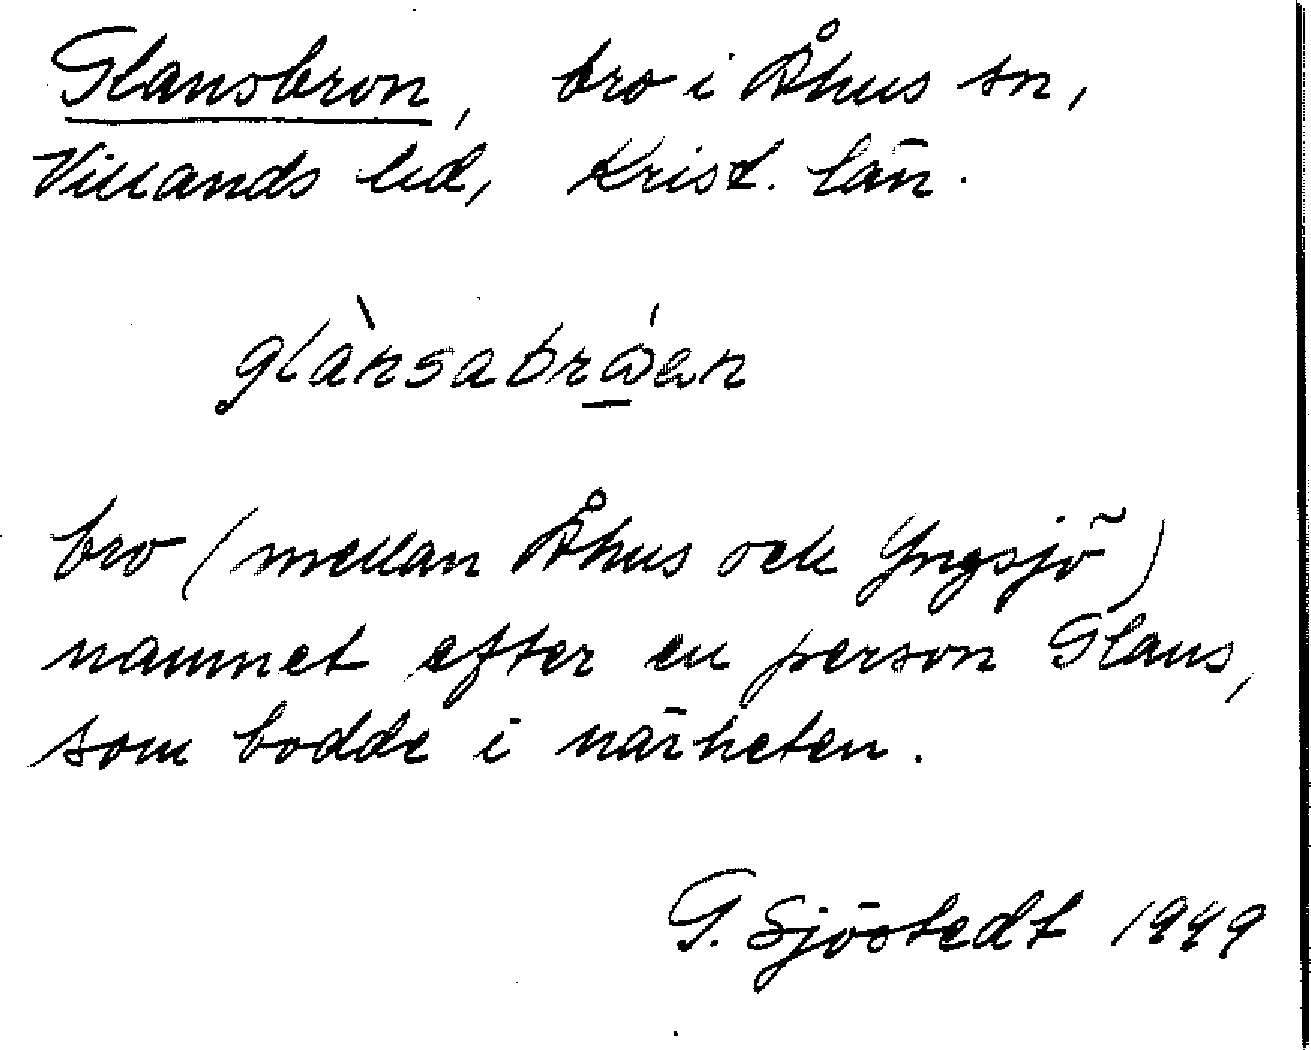 Glansbron, bro i Åhus sn,
Villands hd, Krist. län.
glànsabrώ̲en
bro (mellan Åhus och Yngsjö)
namnet efter en person Glans,
som bodde i närheten.
G. Sjöstedt 1949